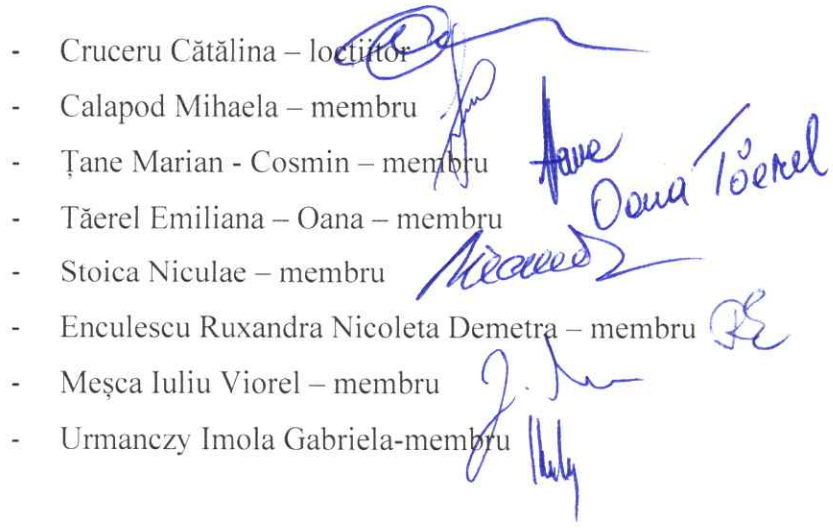 - Cruceru Cătălina – loctiitor
- Calapod Mihaela – membru
- Țane Marian - Cosmin – membru
- Tăerel Emiliana – Oana – membru
Oana Tăerel
- Stoica Niculae – membru
- Enculescu Ruxandra Nicoleta Demetra – membru
- Meșca Iuliu Viorel – membru
- Urmanczy Imola Gabriela-membru